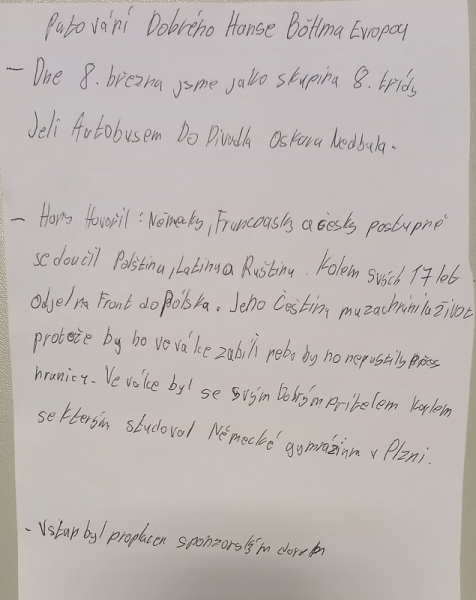 Putování Dobrého Hanse Böhma Evropou
- Dne 8. března jsme jako skupina 8. třídy
Jeli Autobusem Do Divadla Oskara Nedbala.
- Hans Hovořil: Německy, Francouzsky a česky postupně
se doučil Polštinu, Latinu a Ruštinu. Kolem svých 17 let
odjel na Front do Polska. Jeho Čeština mu zachránila život
protože by ho ve válce zabili nebo by ho nepustily přes
hranice. Ve válce byl se svým Dobrým přítelem Karlem
se kterým studoval Německé gymnázium v Plzni.
- Vstup byl proplacen sponzorským darem